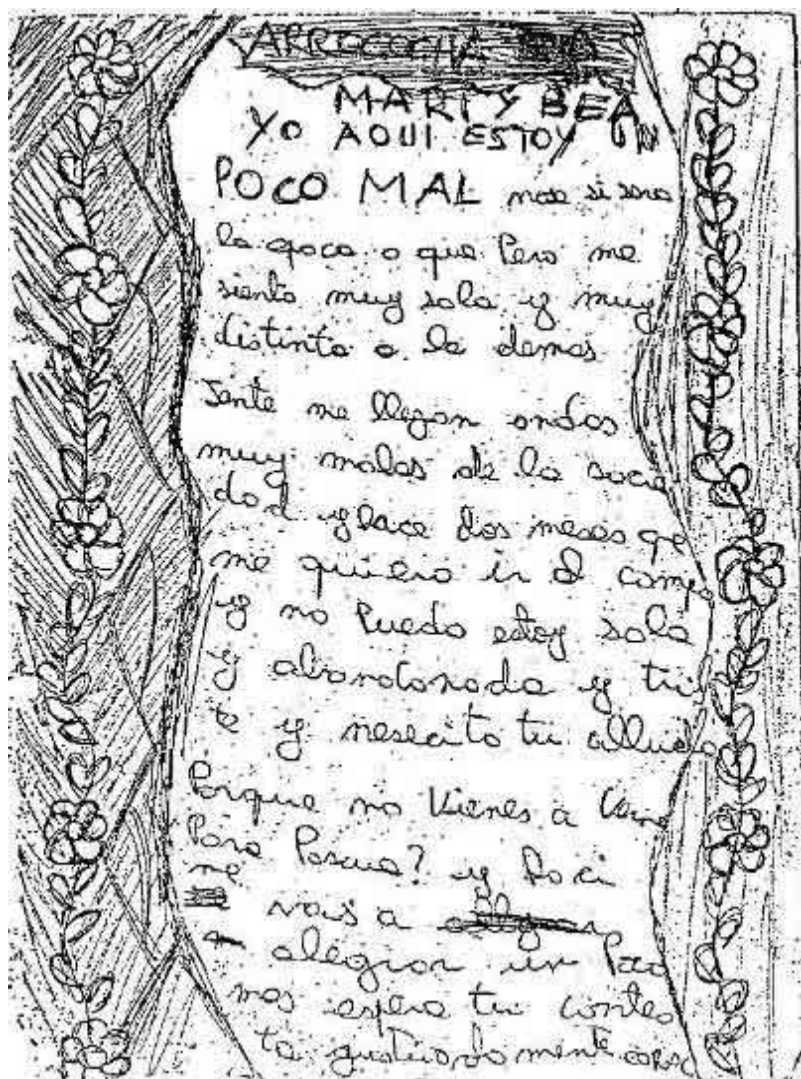 ARROCOCHA
MARI Y BEA
YO AQUI ESTOY UN
POCO MAL nose si sera
la epoca o que Pero me
siento muy sola y muy
distinta a la demas
Jente me llegan ondas
muy malas de la socie
dad y hace dos meses qe
me quiero ir al campo
y no Puedo estoy sola
y abandonada y tris
te y nesecito tu alluda
Porque no Vienes a Verme
Para Pascua? y
me vais a
alegrar un Poco
mas espero tu contes
ta